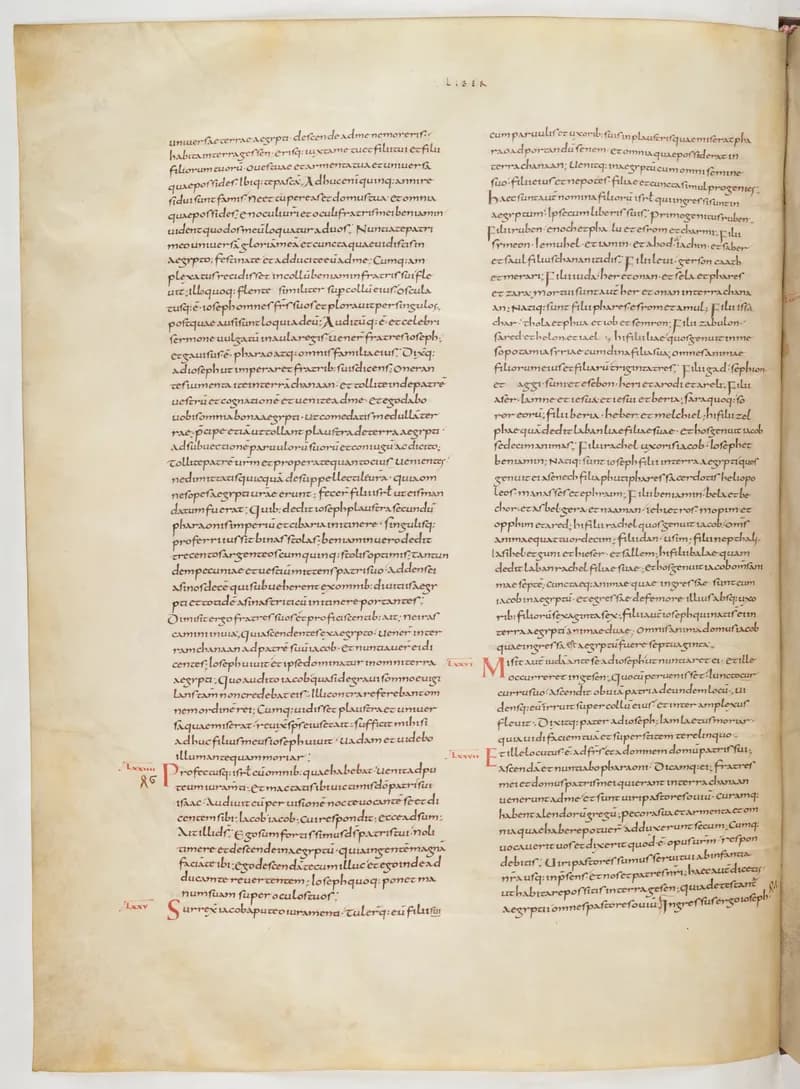 LIBER
universae terrae aegypti · descende ad me ne moreris ·
habita in terra gessen · erisq: iuxta me tu et filii tui et filii
filiorum tuorū · oves tuae et armenta tua et universa
quae possides · Ibiq: te pascā · Adhuc enī quinq: anni re
sidui sunt famis · ne et tu pereas et domus tua · et omnia
quae possides · en oculi vr̄i et oculi fratris mei beniamin
vident quod os meū loquatur ad vos · Nuntiate patri
meo universā gloriā meā et cuncta quae vidistis in
aegypto · festinate et adducite eū ad me · Cumq: am
plexatus recidisset in collū beniamin fratris sui fle
vit · illo quoq: flente similiter sup collū eius · Oscula
tusq: ē ioseph omnes fr̄s suos et ploravit per singulos ·
post quae ausi sunt loqui ad eū · Auditūq: ē et celebri
sermone vulgatū in aula regis · Vener̄ fratres ioseph ·
et gavisus ē pharao atq: omnis familia eius · Dixitq:
ad ioseph ut imperaret fratrib: suis dicens · Oneran
tes iumenta ite in terrā chanaan · et tollite inde patrē
vestrū et cognationē et venite ad me · et ego dabo
vobis omnia bona aegypti · ut comedatis medullā ter
rae · p̄cipe etiā ut tollant plaustra de terra aegypti ·
ad subvectionē parvulorū suorū et coniugū ac dicito ·
Tollite patrē vr̄m et properate quantocius venientes ·
ne dimittatis quicquā de suppellectili vr̄a · quia om
nes opes aegypti vr̄ae erunt · fecer̄ filii isr̄l ut eis man
datum fuerat · Quib: dedit ioseph plaustra secundū
pharaonis imperiū et cibaria in itinere · singulisq:
proferri iussit binas stolas · beniamin vero dedit
trecentos argenteos cum quinq: stolis optimis · tantun
dem pecuniae et vestiū mittens patri suo · addens ei
asinos decē qui subveherent ex omnib: divitiis aegy
pti et totidē asinas triticū in itinere portantes ·
Dimisit ergo fratres suos et proficiscentib: ait · ne iras
camini in via · Qui ascendentes ex aegypto · Vener̄ in ter
ram chanaan ad patrē suū iacob · et nuntiaver̄ ei di
centes · Ioseph vivit et ipse dominatur in omni terra
aegypti · Quo audito iacob quasi de gravi somno evigi
lans tam̄ non credebat eis · Illi contra referebant om
nem ordinē rei · Cumq: vidisset plaustra et univer
sa quae miserat · revixit sp̄s eius et ait · sufficit mihi si
adhuc filius meus ioseph vivit · Vadam et videbo
illum antequam moriar ·
LXXIIII Profectusq: isr̄l cū omnib: quae habebat · Venit ad pu
teum iuramti · et mactatis ibi victimis dō patris sui
isaac · Audivit eū per visionē nocte vocantē se et di
centem sibi · Iacob iacob · Cui respondit · Ecce adsum ·
Ait illi d̄s · Ego sum fortissimus d̄s patris tui · noli
timere et descende in aegyptū · quia in gente magnā
faciā te ibi · ego descendā tecum illuc et ego inde ad
ducam te revertentem · Ioseph quoq: ponet ma
num suam super oculos tuos ·
LXXV Surrexit iacob a puteo iuramenti · Tulerq: eū filii sui
cum parvulis et uxorib: suis in plaustris quae miserat pha
rao ad portandū senem · et omnia quae possiderat in
terra chanaan · Venitq: in aegyptū cum omni semine
suo · filii eius et nepotes · filiae et cuncta simul progenies ·
haec sunt autē nomina filiorū isr̄l qui ingressi sunt in
aegyptum · Ipse cum liberis suis · Primogenitus ruben ·
Filii ruben · enoch et phallu et esrom et charmi · Filii
symeon · Iemuhel et iamin et ahod · iachin et saher
et saul filius chananitidis · Filii levi · gerson caath
et merari · Filii iuda · her et onan · et sela et phares
et zara · mortui sunt autē her et onan in terra chana
an · Natiq: sunt filii phares esrom et amul · Filii isa
char · thola et phua et iob et semron · Filii zabulon ·
sared et helon et iael · hi filii liae quos genuit in me
sopotamia syriae cum dina filia sua · omnes animae
filiorum eius et filiarū triginta tres · Filii gad · sephion
et aggi · suni et esebon · heri et arodi et areli · Filii
aser · Iamne et iesua et iesui et beria · sara quoq: so
ror eorū · filii beria · heber et melchiel · hi filii zel
phae quā dedit laban liae filiae suae · et hos genuit iacob
sedecim animas · Filii rachel uxoris iacob · Ioseph et
beniamin · Natiq: sunt ioseph filii in terra aegypti quos
genuit ei asenech filia phutiphares sacerdotis heliopo
leos · manasses et ephraim · Filii beniamin · bela et be
chor · et asbel · gera et naaman · iehi et ros · mopim et
opphim et ared · hi filii rachel quos genuit iacob · om̄s
animae quatuordecim · filii dan · usim · filii nepthali ·
Iasihel · et guni et hieser · et sallem · hi filii balae quam
dedit laban racheli filiae suae · et hos genuit iacob om̄s ani
mae septē · cunctaeq: animae quae ingressae sunt cum
iacob in aegyptū · et egressae de femore illius absq: uxo
rib: filiorū sexaginta sex · filii autē ioseph qui nati s̄ ei in
terra aegypti animae duae · Omnis anima domus iacob
quae ingressa ē aegyptū fuere septuaginta ·
LXXVI Misit autē iudā ante se ad ioseph ut nuntiaret ei · et ille
occurreret in gessen · Quo cū pervenisset · Iuncto cur
cur ru suo · Ascendit obviā patri ad eundem locū · vi
densq: eū irruit super collū eius · et inter amplexus
flevit · Dixitq: pater ad ioseph · Iam laetus moriar ·
quia vidi faciem tuā et superstitem te relinquo ·
LXXVII Et ille locutus ē · ad fr̄s et ad omnem domū patris sui ·
ascendā et nuntiabo pharaoni · Dicamq: ei · fratres
mei et domus patris mei qui erant in terra chanaan
venerunt ad me · et sunt viri pastores oviū · curamq:
habent alendorū gregū · pecora sua et armenta et om
nia quae habere potuer̄ adduxerunt secum · Cumq:
vocaverit vos et dixerit quod ē opus vr̄m · respon
debitis · Viri pastores sumus servi tui ab infantia
nr̄a usq: in p̄sens · et nos et patres nr̄i · haec autē dicetis
ut habitare possitis in terra gesen · quia detestant̄
aegyptii omnes pastores oviū · Ingressus ergo ioseph